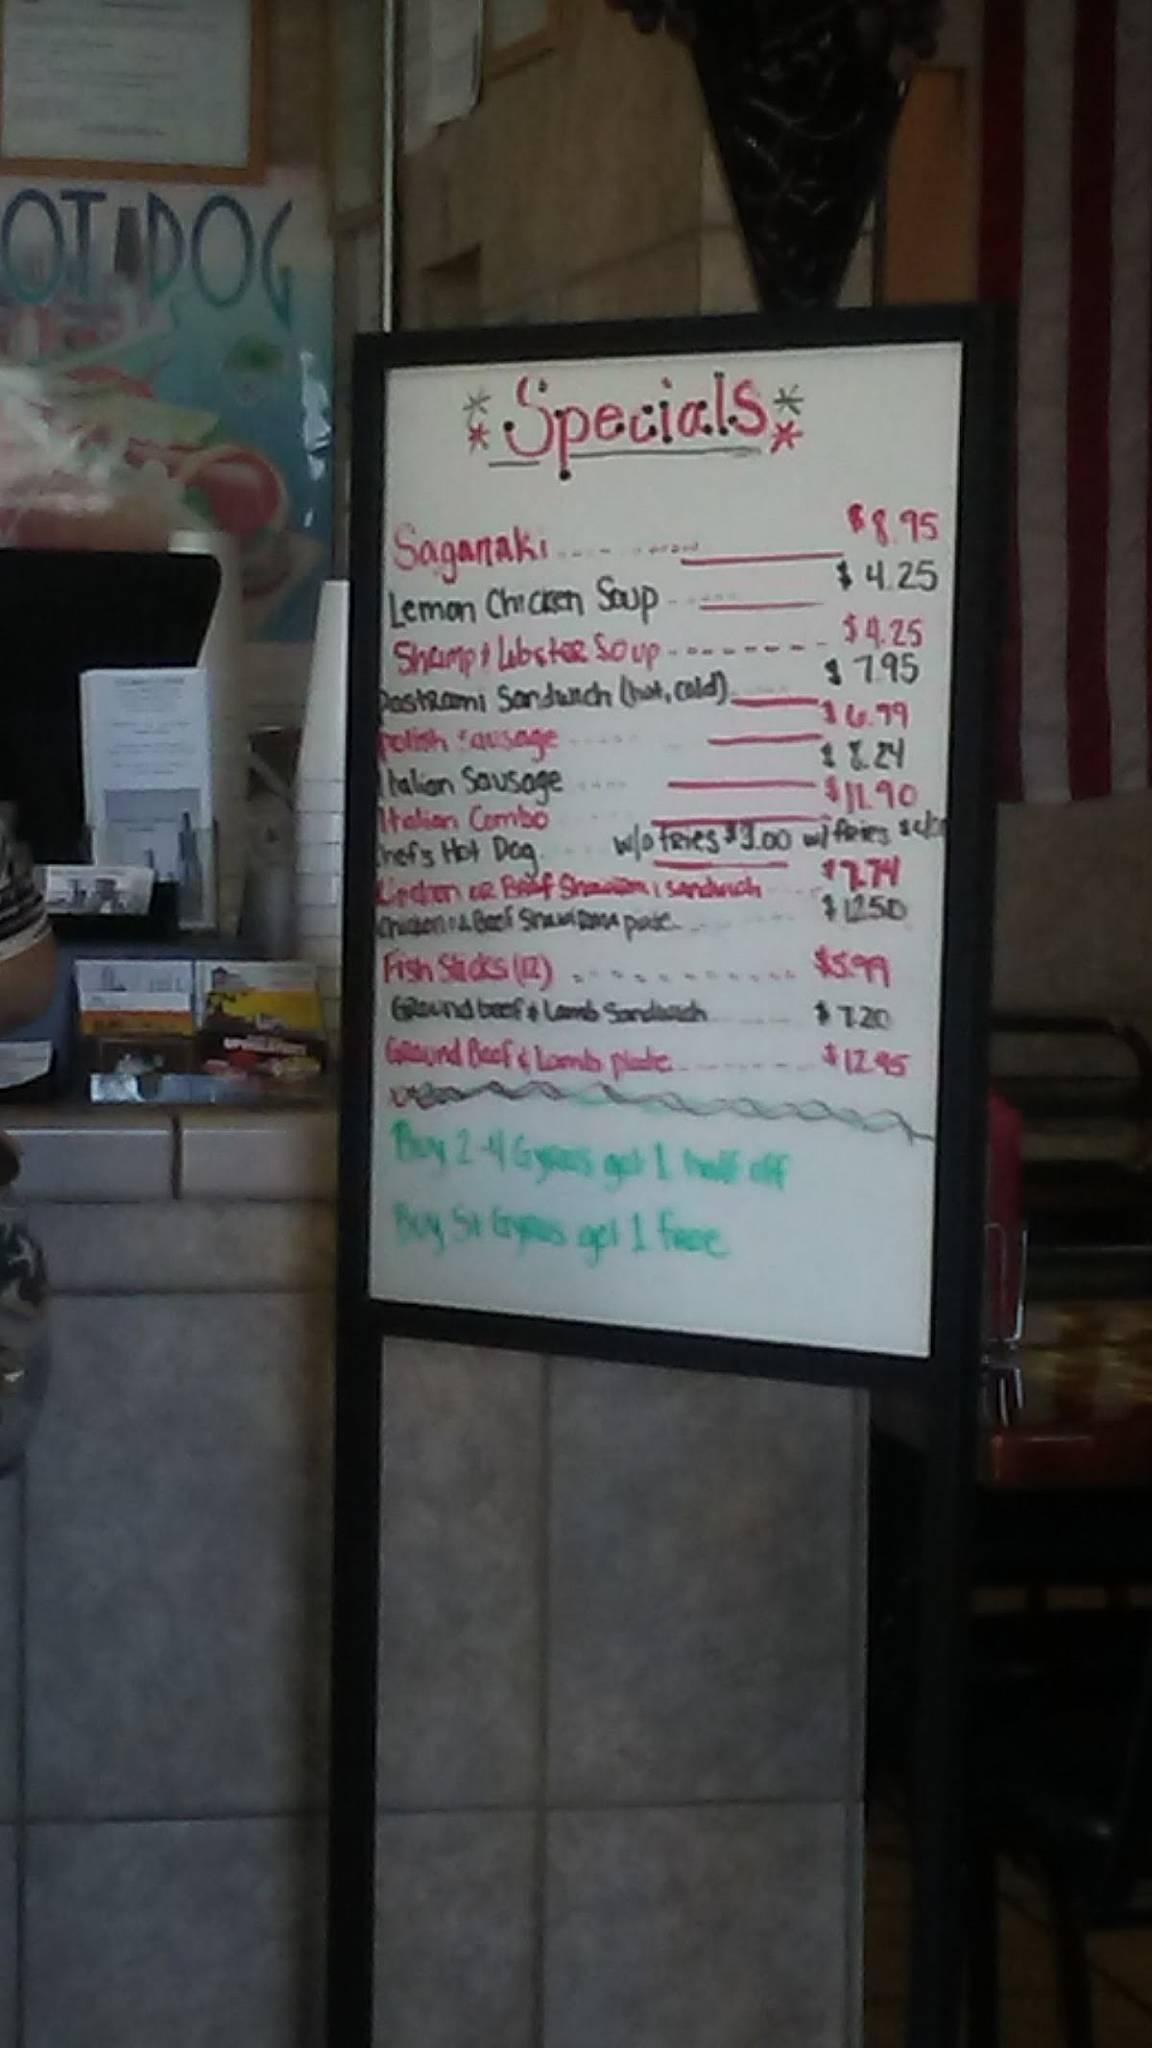 OT DOG
Specials
Saganaki $8.95
Lemon Chicken Soup $4.25
Shrimp & Lobster Soup $4.25
Pastrami Sandwich (hot, cold) $7.95
Polish Sausage $6.99
Italian Sausage $8.24
Italian Combo $11.90
Chef's Hot Dog w/o fries $3.00 w/ fries
Chicken or Beef Shawarma sandwich $7.74
Chicken or Beef Shawarma plate $12.50
Fish Sticks (12) $5.99
Ground beef & Lamb Sandwich $7.20
Ground Beef & Lamb plate $12.95
Buy 2-4 Gyros get 1 half off
Buy 5+ Gyros get 1 free